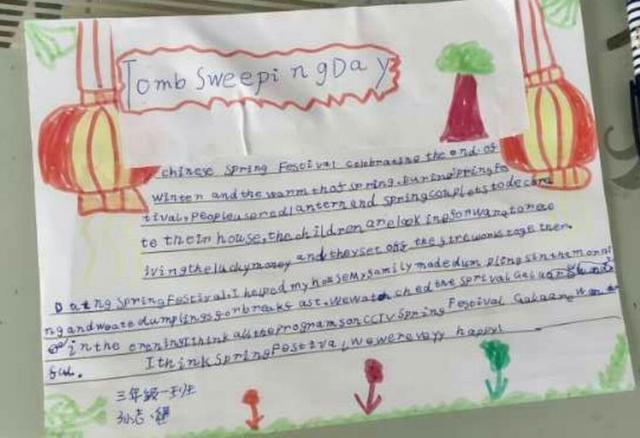 Tomb Sweeping Day
chinese Spring Festival celebrating the end of
winter and the warm that spring. During Spring Fe
tival, People use red lantern and Spring couplets to decora
te their house, the children are looking forwang to rece
iving the lucky money and they set off the fire works together.
During Spring Festival. I helped my house My family made dumplings in the morni
ng and we ate dumplings for breakfast. We watched the Spring Festival Gala
in the evening. think all the programs on CCTV Spring Festival Gala are won
ful. I think Spring Festival, we were very happy!
三年级一班
孙志